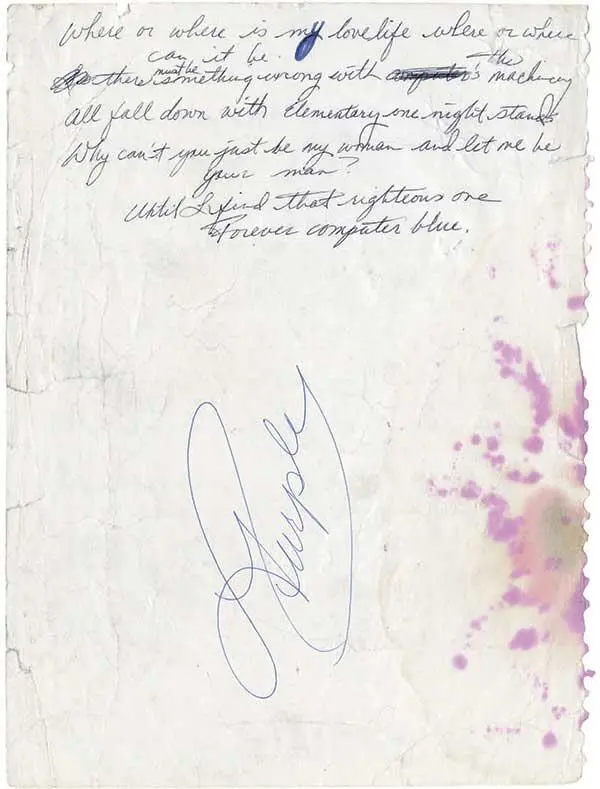 Where or where is my love life where or where
can it be.
there must be something wrong with computer's the machinery
all fall down with Elementary one night stands
Why can't you just be my woman and let me be
your man?
Until I find that righteous one
Forever computer blue.
Purple